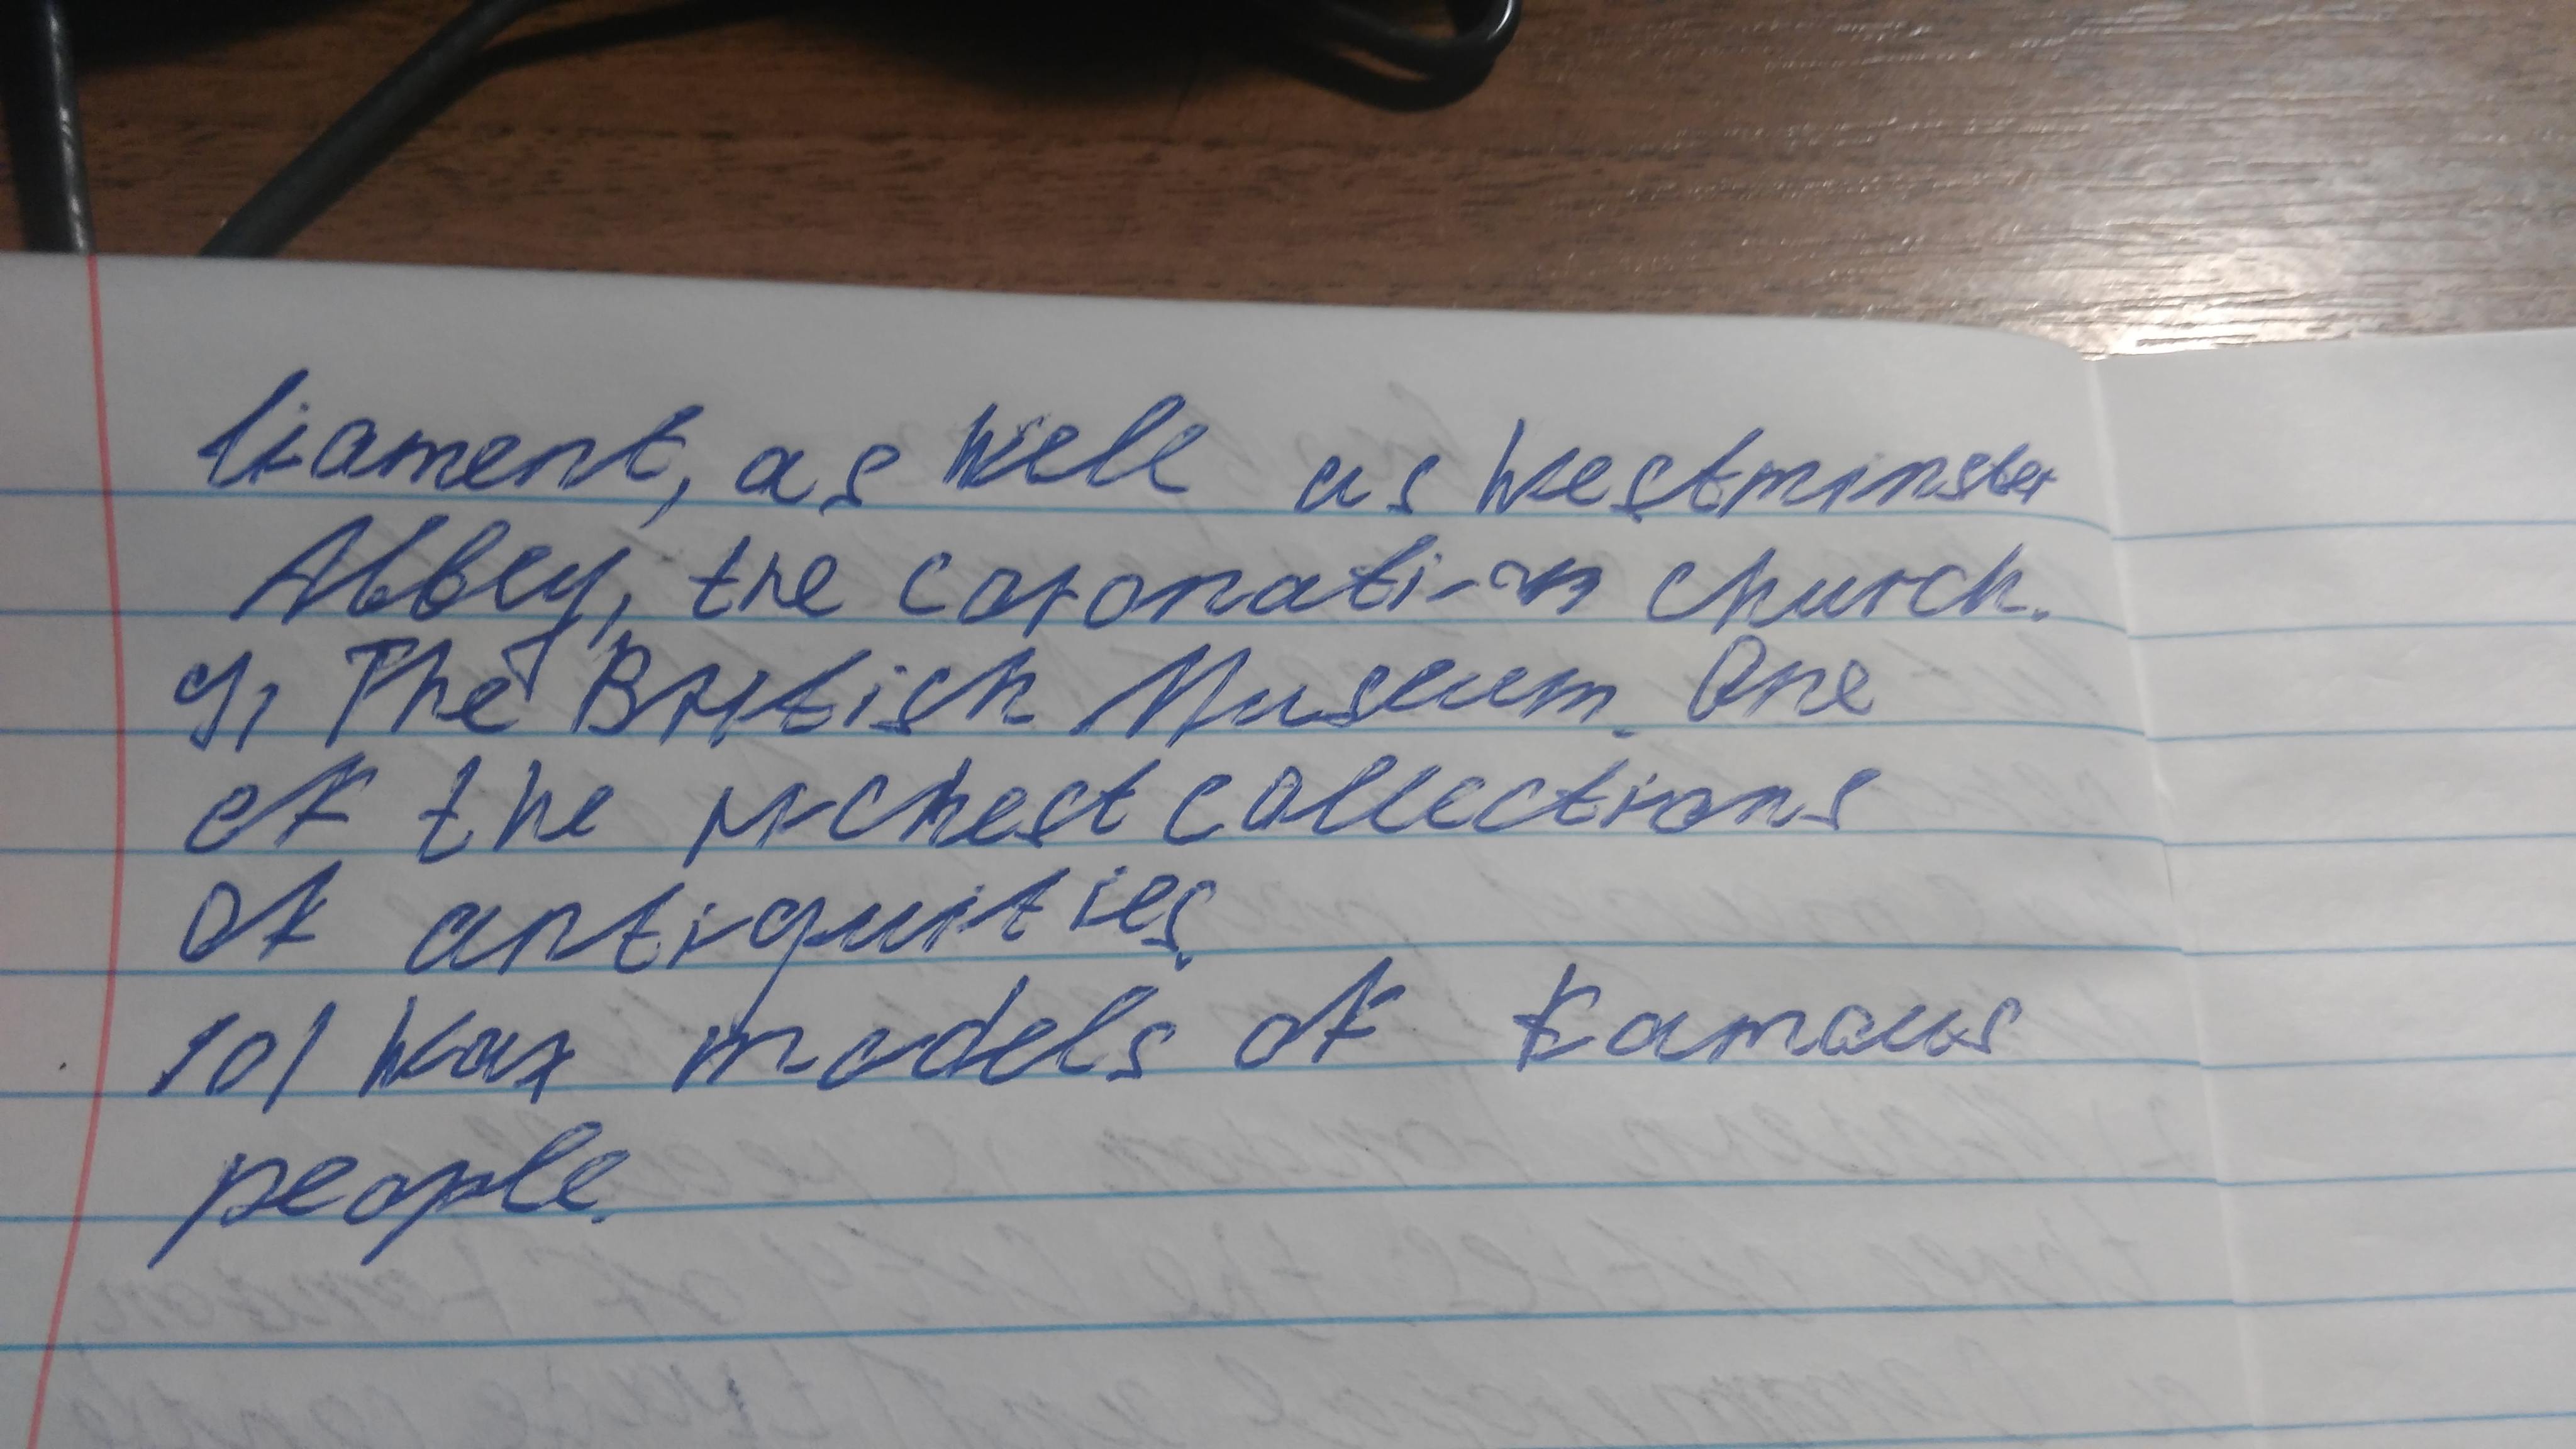 liament, as well as Westminster
Abbey, the coronation church.
9) The British Museum. One
of the richest collections
of antiquities.
10) Wax models of famous
people.